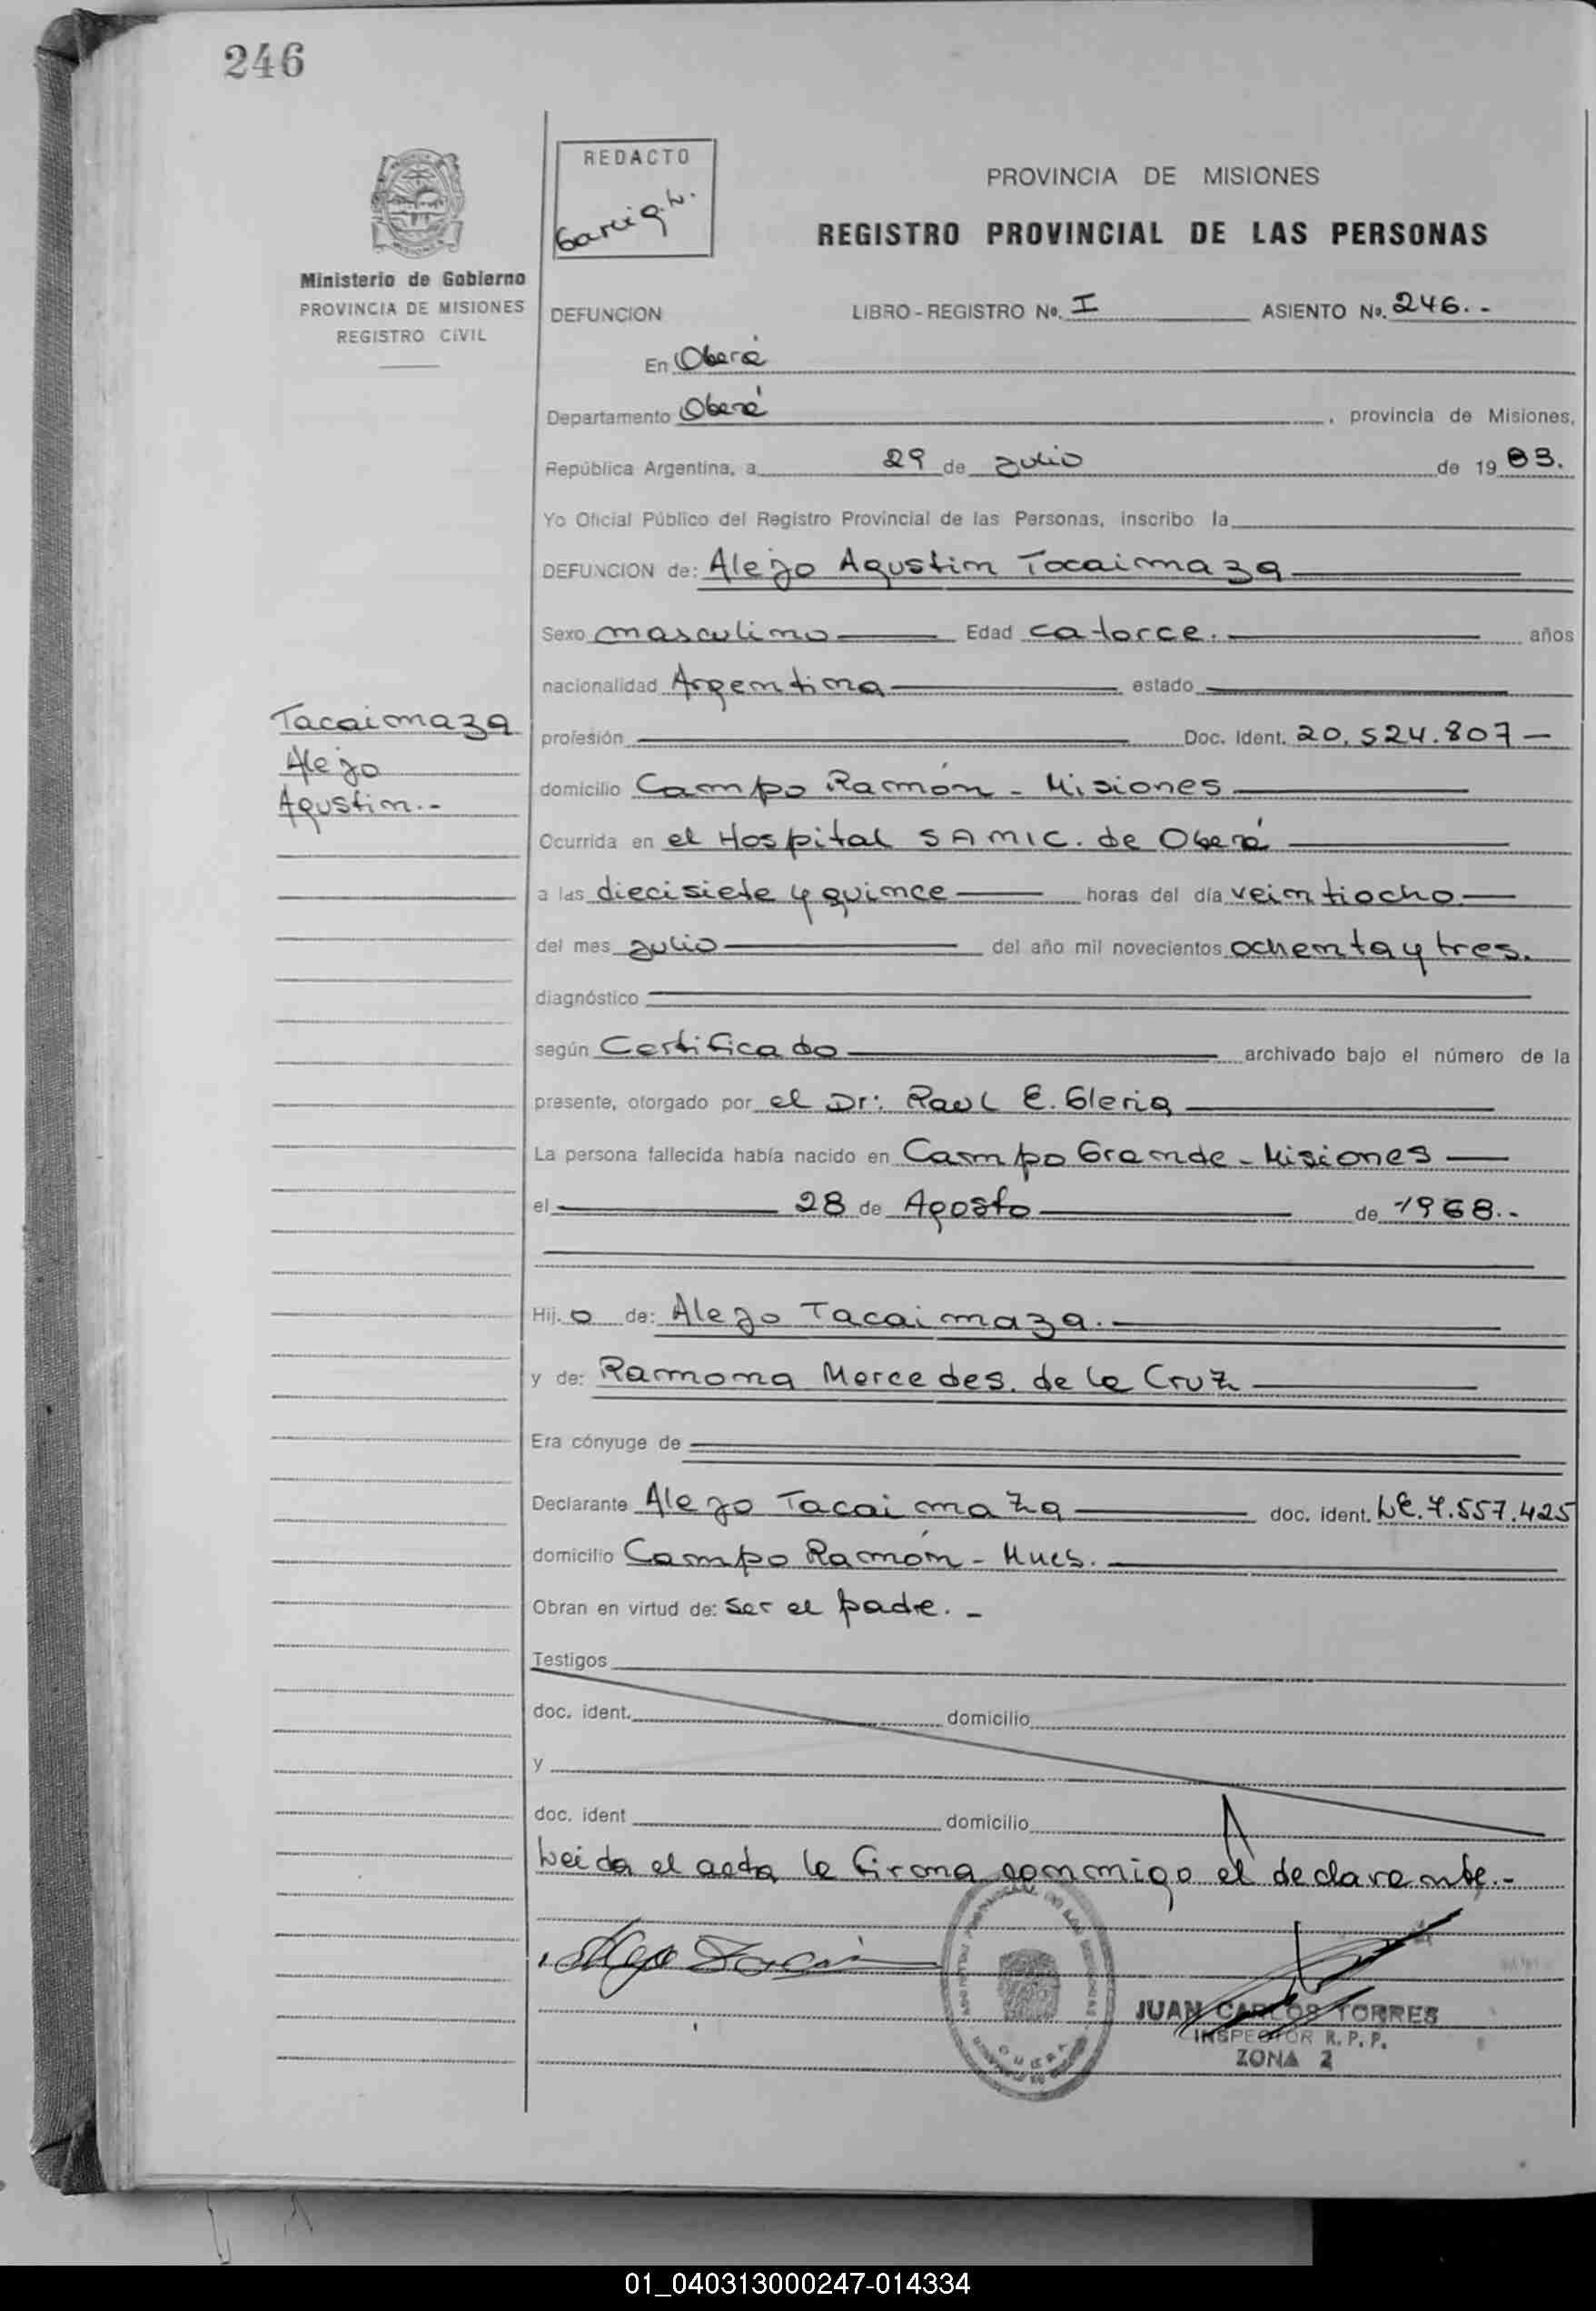 246
REDACTO
Garcia L.
PROVINCIA DE MISIONES
REGISTRO PROVINCIAL DE LAS PERSONAS
Ministerio de Gobierno
PROVINCIA DE MISIONES
REGISTRO CIVIL
DEFUNCION LIBRO-REGISTRO Nº. I ASIENTO Nº. 246.-
En Oberá
Departamento Oberá, provincia de Misiones,
República Argentina, a 29 de Julio de 1983.
Yo Oficial Público del Registro Provincial de las Personas, inscribo la
DEFUNCION de: Alejo Agustin Tacaimaza
Sexo masculino Edad catorce. años
nacionalidad Argentina estado
Tacaimaza
Alejo
Agustin.-
profesión Doc. Ident. 20.524.807
domicilio Campo Ramón - Misiones
Ocurrida en el Hospital SAMIC. de Oberá
a las diecisiete y quince horas del día veintiocho
del mes julio del año mil novecientos ochenta y tres.
diagnóstico
según Certificado archivado bajo el número de la
presente, otorgado por el Dr: Raul E. Gleria
La persona fallecida había nacido en Campo Grande - Misiones
el 28 de Agosto de 1968.-
Hij.o de: Alejo Tacaimaza.
y de: Ramona Mercedes. de la Cruz
Era cónyuge de
Declarante Alejo Tacaimaza doc. ident. L.E. 7.557.425
domicilio Campo Ramón - Mnes.
Obran en virtud de: ser el padre.-
Testigos
doc. ident. domicilio
y
doc. ident domicilio
Leida el acta la firma conmigo el declarante.-
JUAN CARLOS TORRES
INSPECTOR R.P.P.
ZONA 2
01_040313000247-014334